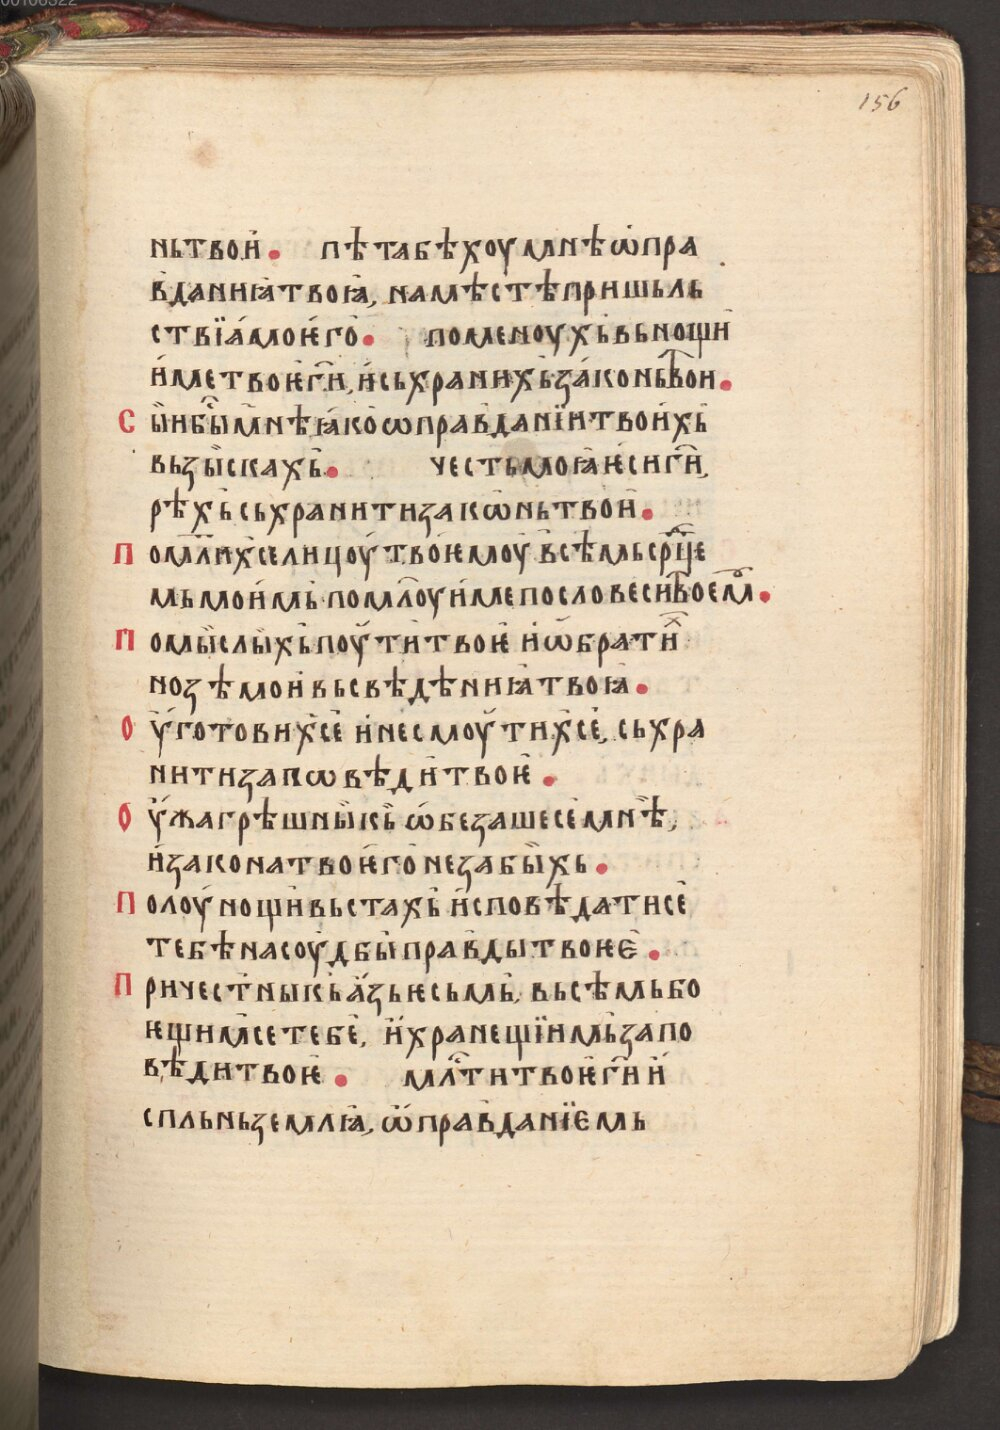 156
ньтвои҆. пѣтабѣхоумнѣѡ҆пра
вданиꙗтвоꙗ, намѣстѣпришьль
ствїа҆моѥ҆го. поменоухьвьнощи
и҆метвоѥ҆ги҃, и҆сьхранихьза҆коньтвои.
Сы҆ибы̑мнѣꙗ҆коѡправданїитвои҆хь
вьзы҆скахь. честьмоꙗѥ҆сиги҃,
рѣхьсьхранитизакѡньтвои҆.
Помл҃ихселицоу҆твоѥ҆моу҆всѣмьср҃це
мьмои҆мь помл҃оуи҆мепословеситвоем.
Помы҆слы҆хьпоу҆титвоѥ҆ и҆ѡ҆братих
нозѣмои҆вьсвѣдѣнниꙗтвоꙗ.
Оу҆готовихсе и҆несмоу҆тихсе, сьхра
нитизапѡвѣди҆твоѥ.
Оу҆жагрѣшны҆кь ѡ҆безашесемнѣ,
и҆законатвоѥ҆гонезабы҆хь.
Полоу҆нощи҆вьстахь и҆сповѣдатисе
тебѣнасоу҆дбы҆правдытвоѥѥ.
Причестныкьа҆зьѥсьмь, вьсѣмьбо
ѥщимсетебе, и҆хранещїимьзапо
вѣдитвоѥ. мл҃титвоѥ҆ги҃ и҆
спльньземлꙗ, ѡ҆правданїемь